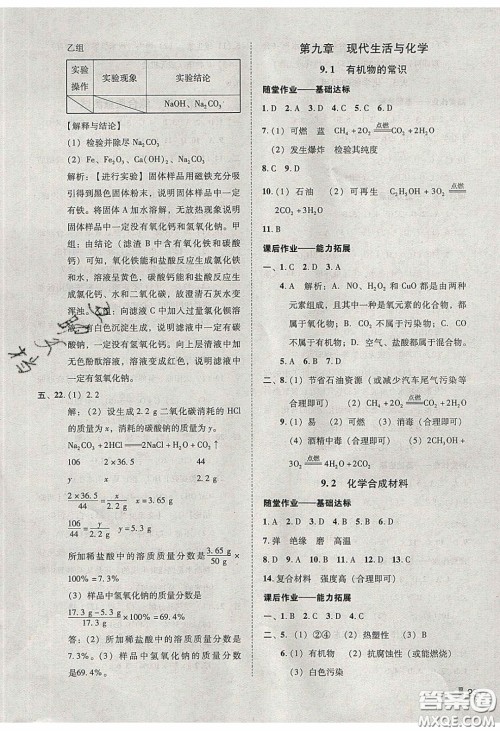 乙组
实验操作 实验现象 实验结论
NaOH、Na₂CO₃
【解释与结论】
(1) 检验并除尽 Na₂CO₃
(2) Fe、Fe₂O₃、Ca(OH)₂、Na₂CO₃
解析:【进行实验】固体样品用磁铁充分吸
引得到黑色固体粉末，说明样品中一定有
铁。将固体 A 加水溶解，无放热现象说明
固体中一定没有氧化钙和氢氧化钠。甲
组：由结论（滤渣 B 中含有氧化铁和碳酸
钙）可知，氧化铁能和盐酸反应生成氯化铁
和水，溶液呈黄色，碳酸钙能和盐酸反应生
成氯化钙、水和二氧化碳，故澄清石灰水变
浑浊。乙组：向滤液 C 中加入过量氯化钙，
有白色沉淀生成，说明滤液中一定含有碳
酸钠，一定没有氯化钙。向上层清液中加
无色酚酞溶液，溶液变成红色，说明滤液中
一定有氢氧化钠。
五、22. (1) 2.2
解：(2) 设生成 2.2 g 二氧化碳消耗的 HCl
的质量为 x，样品中碳酸钠的质量为 y。
Na₂CO₃+2HCl══2NaCl+H₂O+CO₂↑
106 2×36.5 44
y x 2.2 g
2×36.5/44=x/2.2 g x=3.65 g
106/44=y/2.2 g y=5.3 g
所加稀盐酸中的溶质质量分数是3.65 g/50 g
×100%=7.3%。
(3) 样品中氢氧化钠的质量分数是
17.3 g-5.3 g/17.3 g×100%=69.4%。
答：(2) 所加稀盐酸中溶质的质量分数是
7.3%。(3) 样品中氢氧化钠的质量分数
是69.4%。
第九章 现代生活与化学
9.1 有机物的常识
随堂作业——基础达标
1. D 2. A 3. D 4. D 5. B 6. D
7. (1) 可燃 蓝 CH₄+2O₂ 点燃══ CO₂+2H₂O
(2) 发生爆炸 检验其纯度
8. C 9. D
10. (1) 石油 (2) 可再生 C₂H₅OH+3O₂ 点燃══
2CO₂+3H₂O
11. B
课后作业——能力拓展
一、1. C 2. D
3. A 解析：A. NO、H₂O 和 CuO 都是由两种
元素组成，且其中一种是氧元素的化合物，
都属于氧化物。B. CO₂ 不属于有机物。
C. KCl 不属于碱。D. 空气、盐酸都属于混
合物。
4. C
二、8. (1) 节省石油资源（或减少汽车尾气污染等
合理即可）
(2) CH₄+2O₂ 点燃══ CO₂+2H₂O
(3) 燃烧（合理即可）
(4) 酒精中毒（合理即可） (5) C₂H₅OH+
3O₂ 点燃══ 2CO₂+3H₂O
9.2 化学合成材料
随堂作业——基础达标
1. A 2. D 3. D 4. A 5. B 6. D
7. 弹 绝缘 磨 高温
8. D 9. D 10. A 11. D 12. D 13. C
14. 复合材料 强度高（合理即可）
课后作业——能力拓展
一、1. B 2. D 3. C 4. D
二、5. (1) ②④ (2) 热塑性 (3) ①
6. (1) 有机物 (2) 抗腐蚀（或绝缘性能好）
(3) 白色污染
答案圈
MXQE.COM